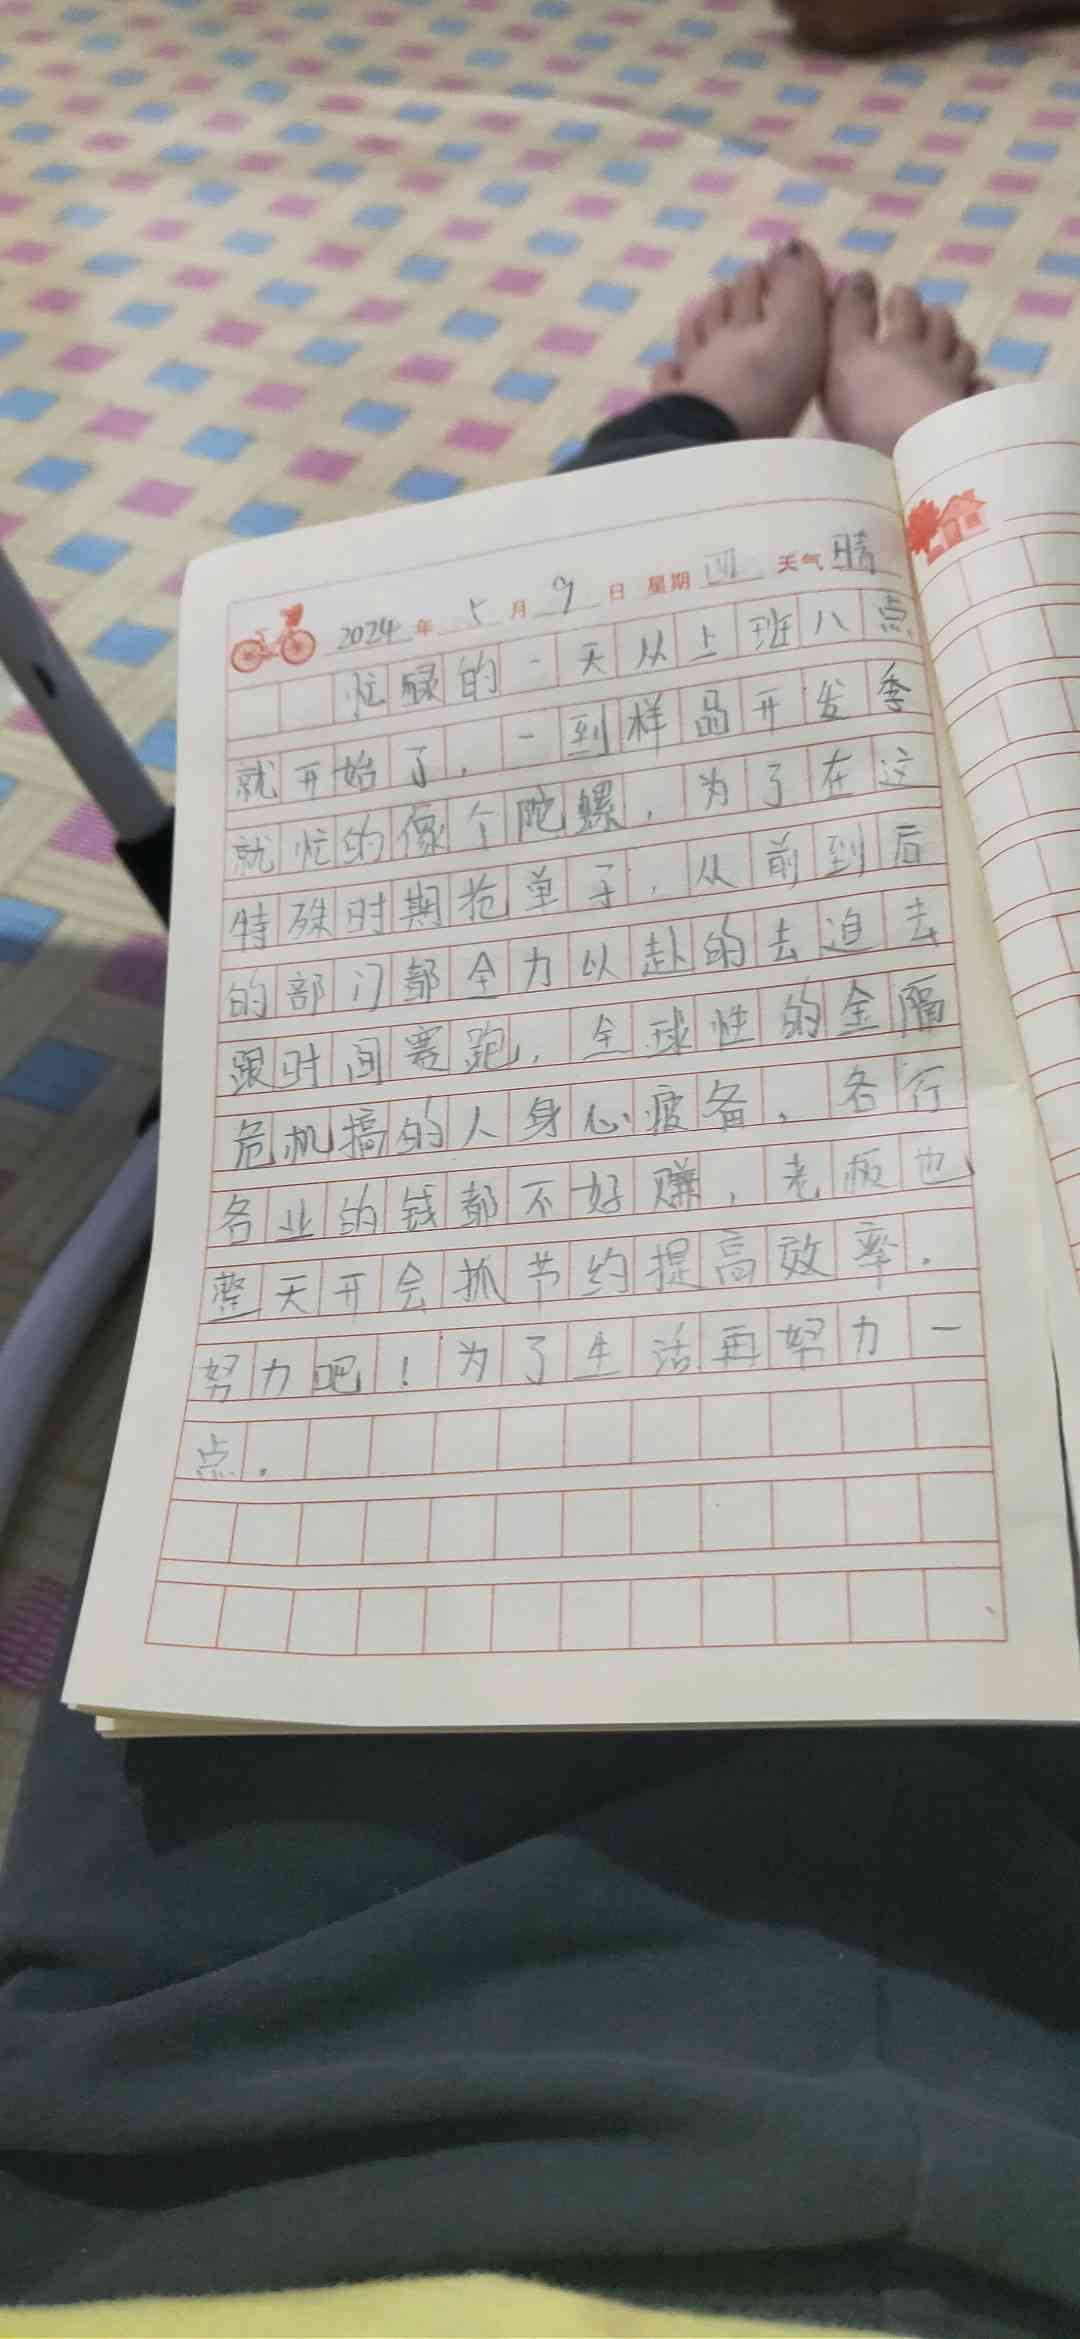 2024年5月9日 星期四 天气晴
忙碌的一天从上班八点
就开始了,一到样品开发季
就忙的像个陀螺,为了在这
特殊时期抢单子,从前到后
的部门都全力以赴的去追去
跟时间赛跑,全球性的金隔
危机搞的人身心疲备,各行
各业的钱都不好赚,老板也
整天开会抓节约提高效率.
努力吧!为了生活再努力一
点.